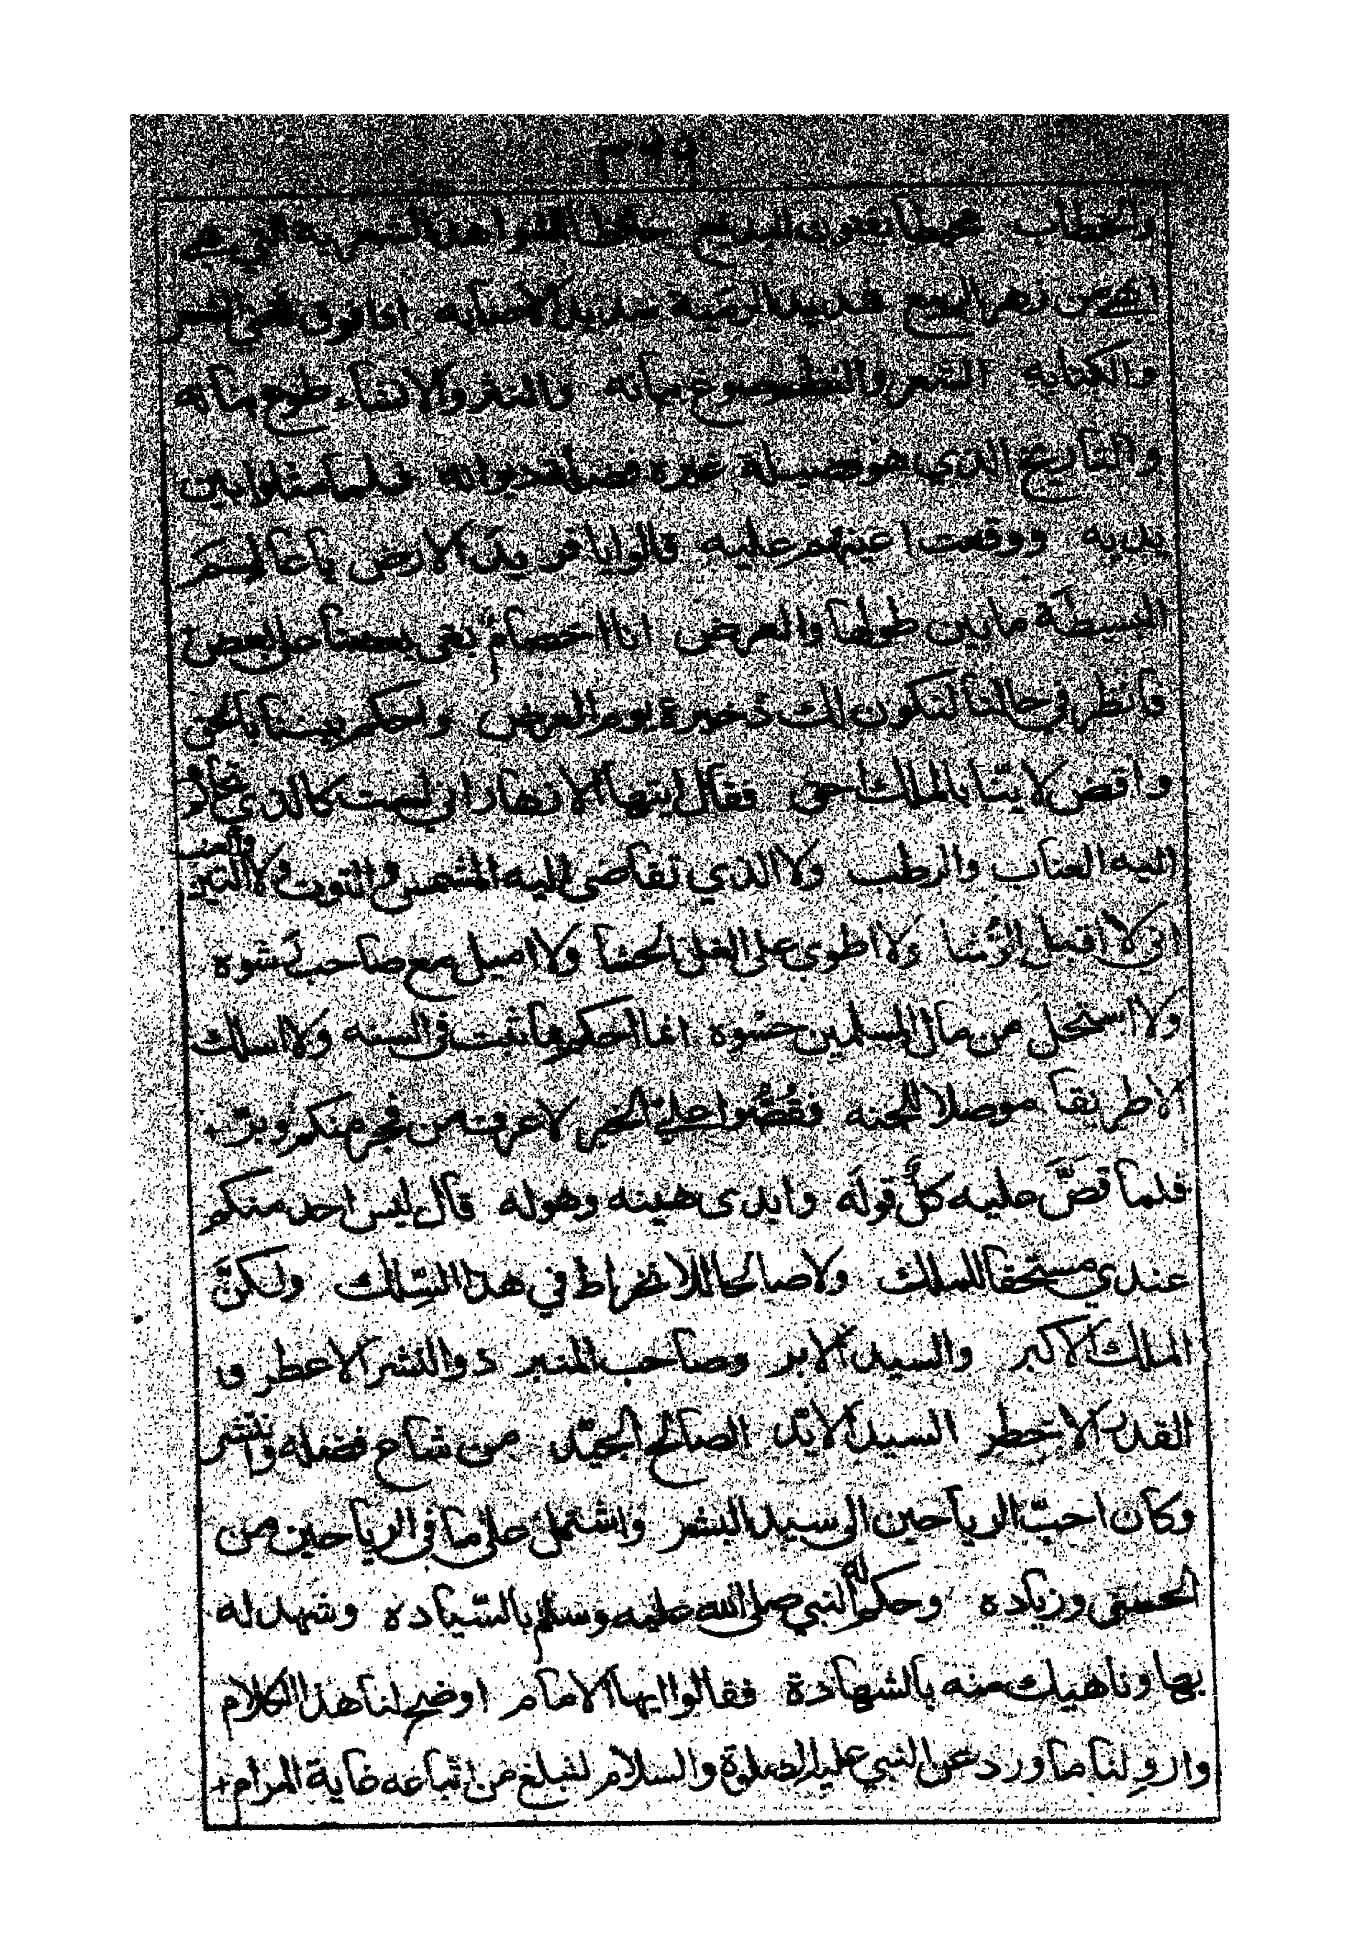 والخطاب
ابهى من زهر الربيع شديد الاصابه انا فوق
والكتابه الشعر والنظم صوغ بيانه والنثر والانشاء طوع بنانه
والتاريخ الذي هو فضيلة غيره فضلة ديوانه فلما مثلوا بين
يديه ووقعت اعينهم عليه قالوا يا فريد الارض يا عالم
البسيطة ما بين طولها والعرض انا اخصام بغى بعضنا على بعض
فانظر في حالنا لتكون لك ذخيرة يوم العرض واحكم بيننا بالحق
واقض لاينا بالملك احق فقال ايتها الازهار اني لست كالذي تحاكم
اليه العناب والرطب ولا الذي تقاضى اليه المشمش والتوت ولا التين والعنب
اني لا اقبل الرشا ولا اطوي على الغل الحشا ولا اميل مع صاحب رشوه
ولا استحل من مال المسلمين حسوه انما احكم بما ثبت في السنه ولا اسلك
الا طريقا موصلا للجنه فقصوا علي الخبر لاعرف من فجر منكم وبر
فلما قص عليه كل قوله وابدى هينه وهوله قال ليس احد منكم
عندي مستحقا للملك ولا صالحا للانخراط في هذا السلك ولكن
الملك الاكبر والسيد الابر وصاحب المنبر ذو النشر الاعطر و
القدر الاخطر السيد الايد الصالح الجيد من شاع فضله وانتشر
وكان احب الرياحين الى سيد البشر واشتمل على ما في الرياحين من
الحسنى وزياده وحكم له النبي صلى الله عليه وسلم بالسياده وشهد له
بها وناهيك منه بالشهادة فقالوا ايها الامام اوضح لنا هذا الكلام
وارو لنا ما ورد عن النبي عليه الصلوة والسلام لنبلغ من اتباعه غاية المرام